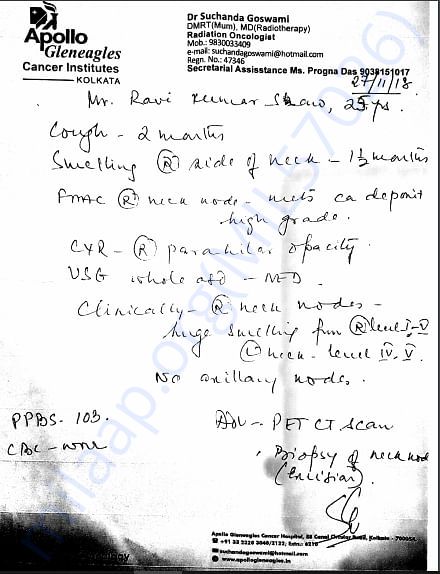 Apollo
Gleneagles
Cancer Institutes
KOLKATA
Dr Suchanda Goswami
DMRT(Mum), MD(Radiotherapy)
Radiation Oncologist
Mob.: 9830033409
e-mail: suchandagoswami@hotmail.com
Regn. No.: 47346
Secretarial Assisstance Ms. Progna Das 9038151017
27/11/18
Mr. Ravi Kumar Shaw, 25 yrs.
Cough - 2 months
Swelling (R) side of neck - 1½ months
FNAC (R) neck node - mets ca deposit
high grade.
CXR - (R) parahilar opacity.
USG whole abd - NED.
Clinically - (R) neck nodes -
huge swelling from (R) level I-V
(L) neck - level IV, V.
No axillary nodes.
PPBS - 103.
CBC - WNL
Adv - PET CT scan
, Biopsy of neck node
(Excision).
Apollo Gleneagles Cancer Hospital, 58 Canal Circular Road, Kolkata - 700054
+91 33 2320 3040/2122; Extn.: 6210
suchandagoswami@hotmail.com
www.apollogleneagles.in